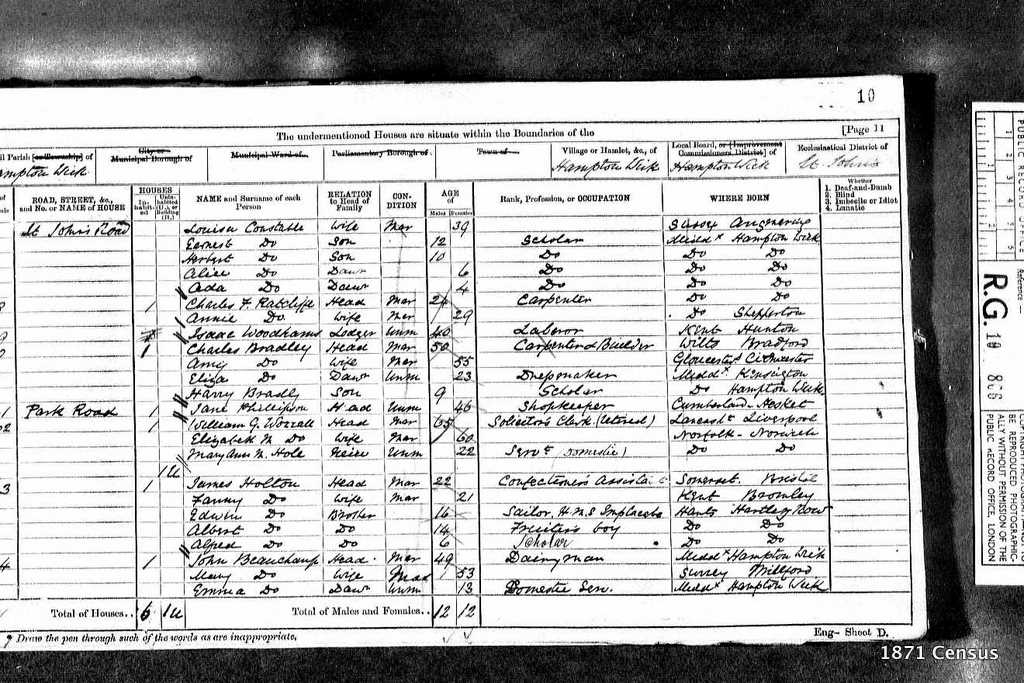 10
The undermentioned Houses are situate within the Boundaries of the [Page 11
il Parish [or Township] of City or Municipal Borough of Municipal Ward of Parliamentary Borough of Town of Village or Hamlet, &c., of Local Board, or [Improvement Commissioners District] of Ecclesiastical District of
ampton Wick Hampton Wick Hampton Wick St John's
ROAD, STREET, &c., and No. or NAME of HOUSE HOUSES In-habit-ed Unin-habited (U.), or Building (B.) NAME and Surname of each Person RELATION to Head of Family CON-DITION AGE of Males Females Rank, Profession, or OCCUPATION WHERE BORN Whether 1. Deaf-and-Dumb 2. Blind 3. Imbecile or Idiot 4. Lunatic
St John's Road Louisa Constable Wife Mar 39 Sussex Angmering
Earnest Do Son 12 Scholar Middx Hampton Wick
Herbert Do Son 10 Do Do Do
Alice Do Daur 6 Do Do Do
Ada Do Daur 4 Do Do Do
8 1 Charles F. Ratcliffe Head Mar Carpenter Do Do
Annie Do Wife Mar 29 Do Shepperton
9 Isaac Woodhams Lodger Unm 40 Laboror Kent Hunton
1 Charles Bradley Head Mar 50 Carpenter & Builder Wilts Bradford
Amy Do Wife Mar 55 Gloucester
Eliza Do Daur Unm 23 Middx Kensington
Harry Bradly Son 9 Scholar Do Hampton Wick
1 Park Road 1 Jane Phillipson Head Unm 46 Shopkeeper Cumberland - Hesket
2 1 William G. Head Mar 65 Solicitors Clerk (retired) Liverpool
Elizabeth M. Do Wife Mar 60 Norfolk - Norwich
Mary Ann M. Hole Neice Unm 22 Servt (Domestic) Do Do
1 U
3 1 James Holton Head Mar 22 Confectioners Somerset Bristol
Fanny Do Wife Mar 21 Kent Bromley
Edwin Do Brother 16 Sailor, H.M.S Hants Hartley Row
Albert Do Do 14 Fruiters boy Do Do
Alfred Do Do 6 Scholar Do Do
4 1 John Beauchamp Head Mar 49 Dairyman Middx Hampton Wick
Mary Do Wife Mar 53 Surrey Milford
Emma Do Daur Unm 13 Domestic Serv. Middx Hampton Wick
Total of Houses.. 6 1U Total of Males and Females.. 12 12
Draw the pen through such of the words as are inappropriate. Eng- Sheet D.
PUBLIC RECORD
Reference:-
R.G. 10 866
BE REPRODUCED PHOTOGRAPHIC-
ALLY WITHOUT PERMISSION OF THE
PUBLIC RECORD OFFICE, LONDON
1871 Census